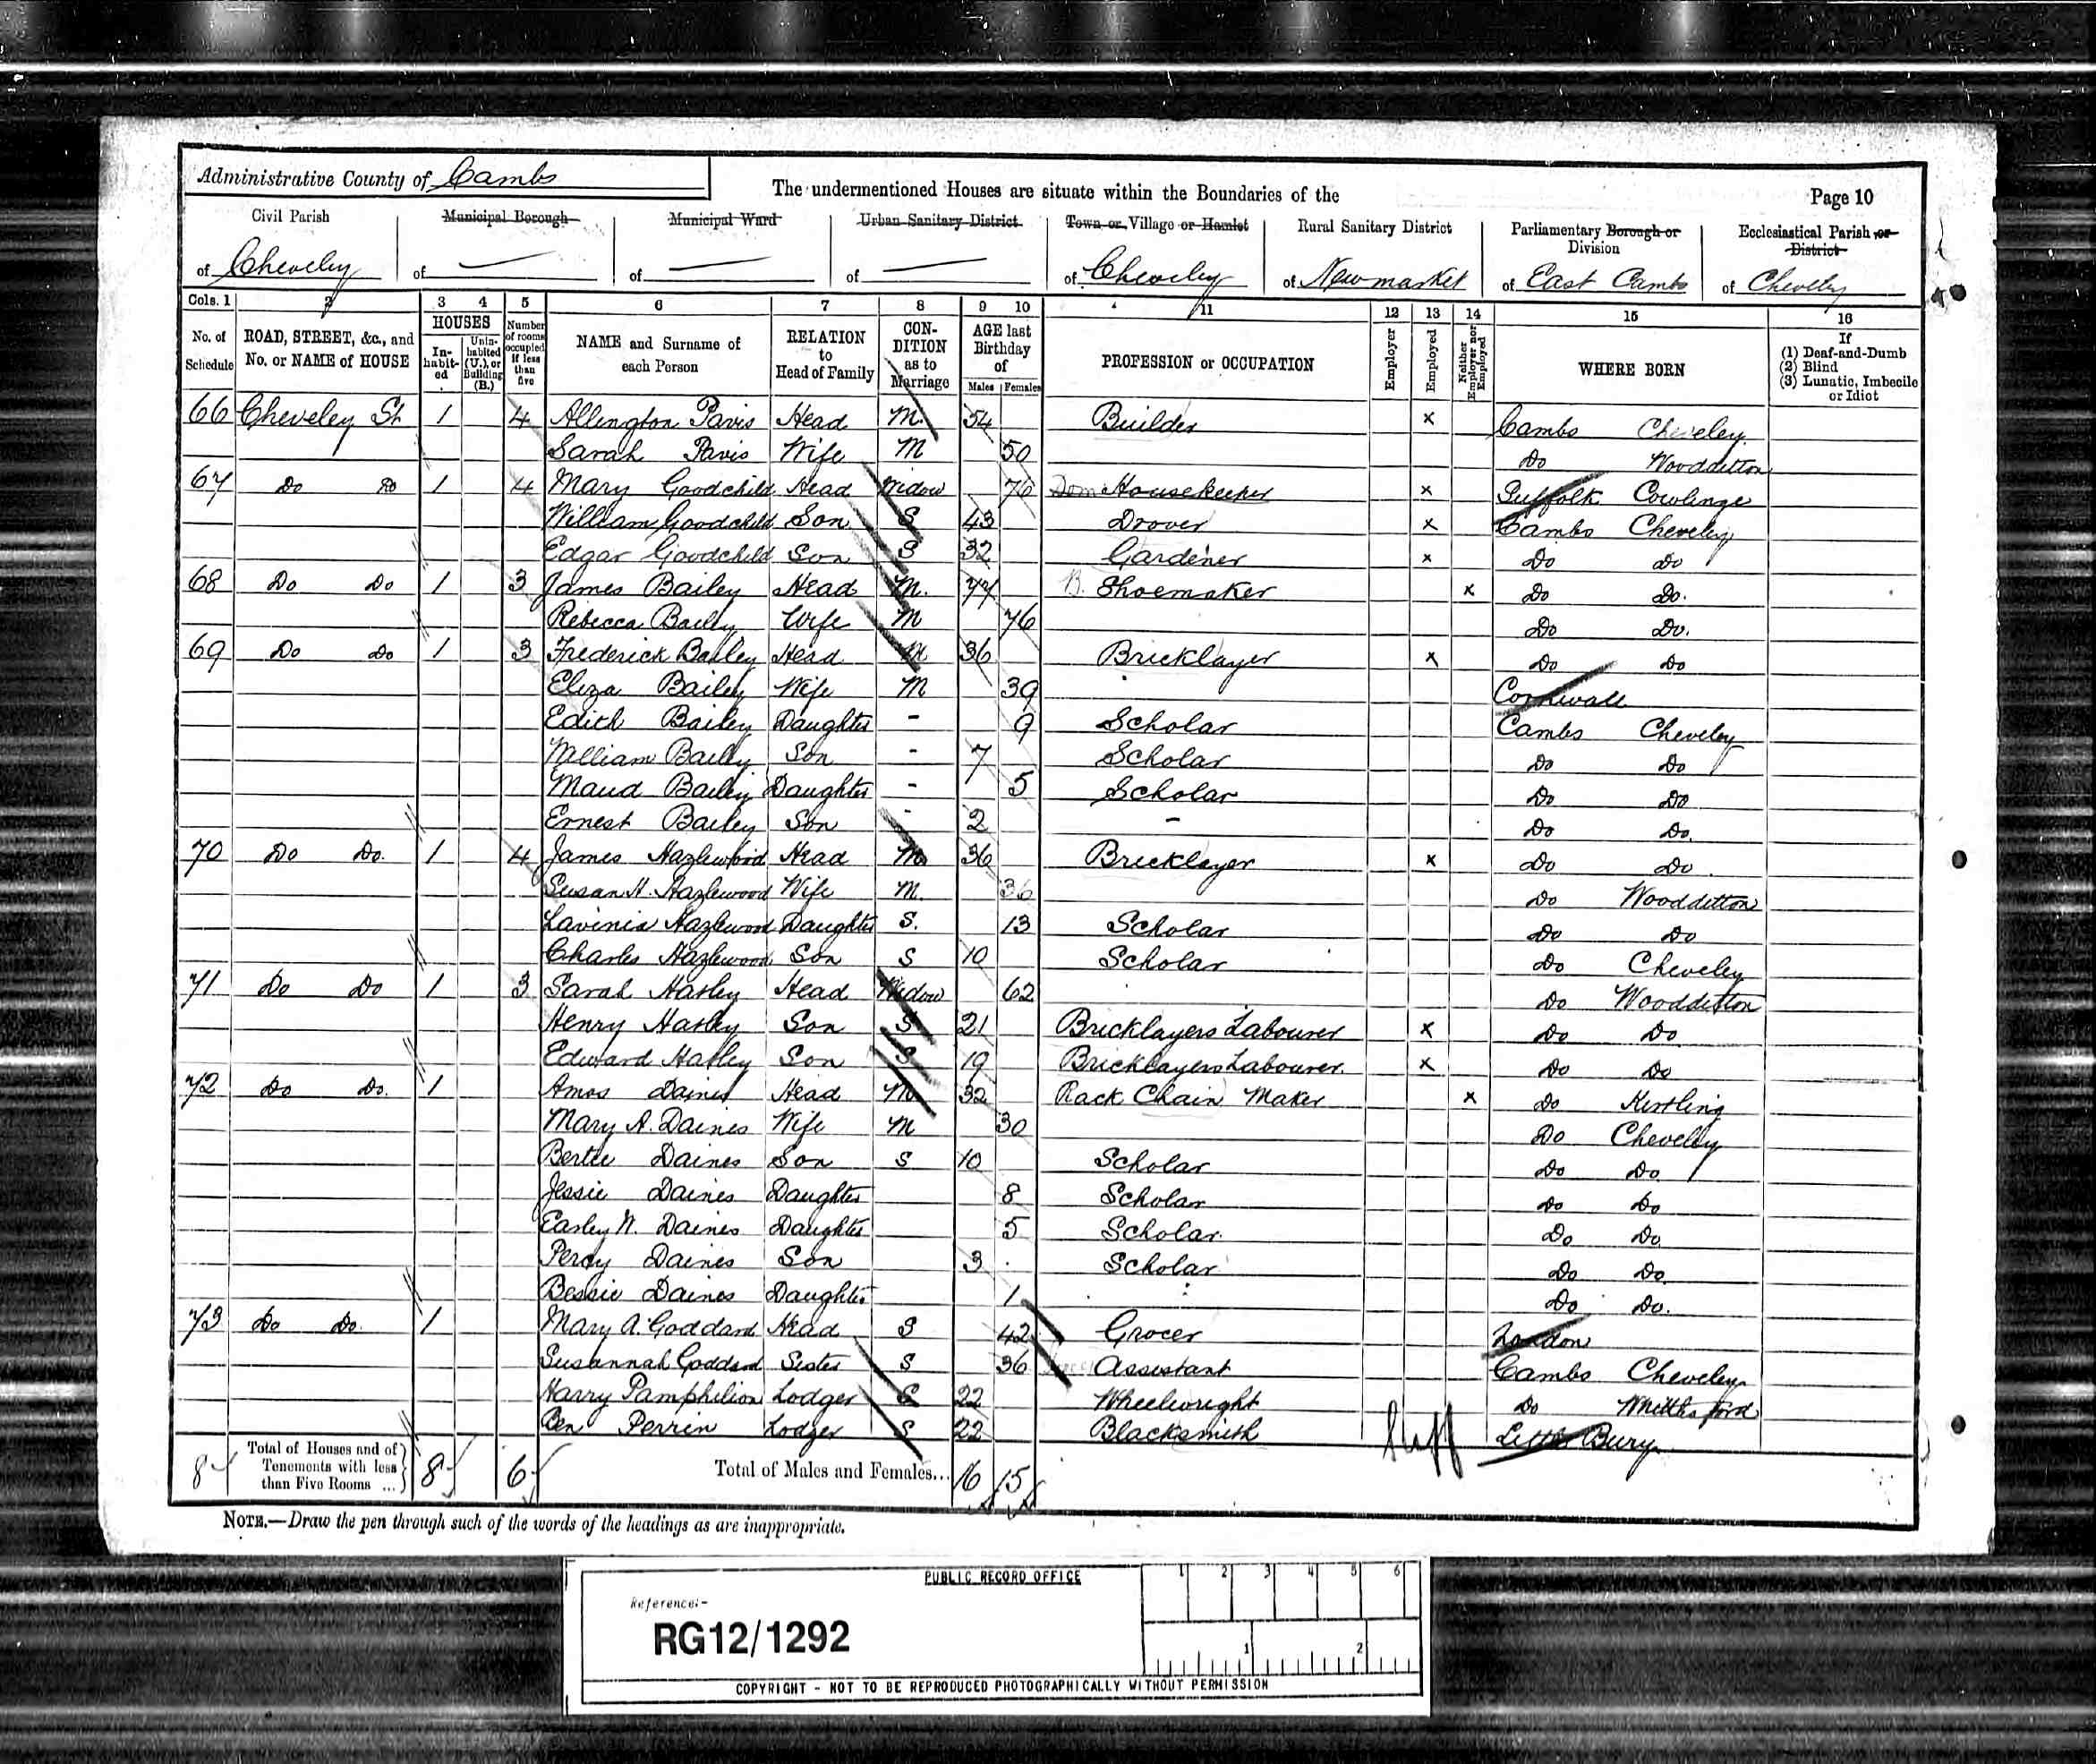 Administrative County of Cambs
The undermentioned Houses are situate within the Boundaries of the
Page 10
Civil Parish Municipal Borough Municipal Ward Urban Sanitary District Town or Village or Hamlet Rural Sanitary District Parliamentary Borough or Division Ecclesiastical Parish or District
of Cheveley of — of — of — of Cheveley of Newmarket of East Cambs of Cheveley
Cols. 1 2 3 4 5 6 7 8 9 10 11 12 13 14 15 16
No. of Schedule ROAD, STREET, &c., and No. or NAME of HOUSE HOUSES In-habit-ed Unin-habited (U.), or Building (B.) Number of rooms occupied if less than five NAME and Surname of each Person RELATION to Head of Family CON-DITION as to Marriage AGE last Birthday of Males Females PROFESSION or OCCUPATION Employer Employed Neither Employer nor Employed WHERE BORN If (1) Deaf-and-Dumb (2) Blind (3) Lunatic, Imbecile or Idiot
66 Cheveley St 1 4 Allington Pavis Head M. 54 Builder x Cambs Cheveley
Sarah Pavis Wife M 50 Do Woodditton
67 Do Do 1 4 Mary Goodchild Head Widow 76 Dom Housekeeker x Suffolk Cowlinge
William Goodchild Son S 43 Drover x Cambs Cheveley
Edgar Goodchild Son S 32 Gardener x Do Do
68 Do Do 1 3 James Bailey Head M. 77 Shoemaker x Do Do.
Rebecca Bailey Wife M 76 Do Do.
69 Do Do 1 3 Frederick Bailey Head M 36 Bricklayer x Do Do
Eliza Bailey Wife M 39 Cornwall
Edith Bailey Daughter - 9 Scholar Cambs Cheveley
William Bailey Son - 7 Scholar Do Do
Maud Bailey Daughter - 5 Scholar Do Do
Ernest Bailey Son - 2 - Do Do.
70 Do Do. 1 4 James Hazlewood Head M 36 Bricklayer x Do Do.
Susan H. Hazlewood Wife M. 36 Do Woodditton
Lavinia Hazlewood Daughter S. 13 Scholar Do Do
Charles Hazlewood Son S 10 Scholar Do Cheveley
71 Do Do 1 3 Sarah Harley Head Widow 62 Do Woodditton
Henry Harley Son S 21 Bricklayers Labourer x Do Do
Edward Harley Son S 19 Bricklayers Labourer. x Do Do
72 Do Do. 1 Amos Daines Head M 32 Rack Chain Maker x Do Kirtling
Mary A. Daines Wife M 30 Do Cheveley
Bertie Daines Son S 10 Scholar Do Do
Jessie Daines Daughter 8 Scholar Do Do
Daines Daughter 5 Scholar. Do Do
Percy Daines Son 3 Scholar Do Do.
Bessie Daines Daughter 1 Do Do.
73 Do Do. 1 Mary A. Goddard Head S 42 Grocer London
Susannah Goddard Sister S 36 Assistant Cambs Cheveley
Harry Pamphilion Lodger S 22 Wheelwright Do
Ben Perrin Lodger S 22 Blacksmith Suff Little Bury
8 Total of Houses and of Tenements with less than Five Rooms ... 8 6 Total of Males and Females... 16 15
NOTE.—Draw the pen through such of the words of the headings as are inappropriate.
PUBLIC RECORD OFFICE
1 2 3 4 5 6
Reference:-
RG12/1292
1 2
COPYRIGHT - NOT TO BE REPRODUCED PHOTOGRAPHICALLY WITHOUT PERMISSION